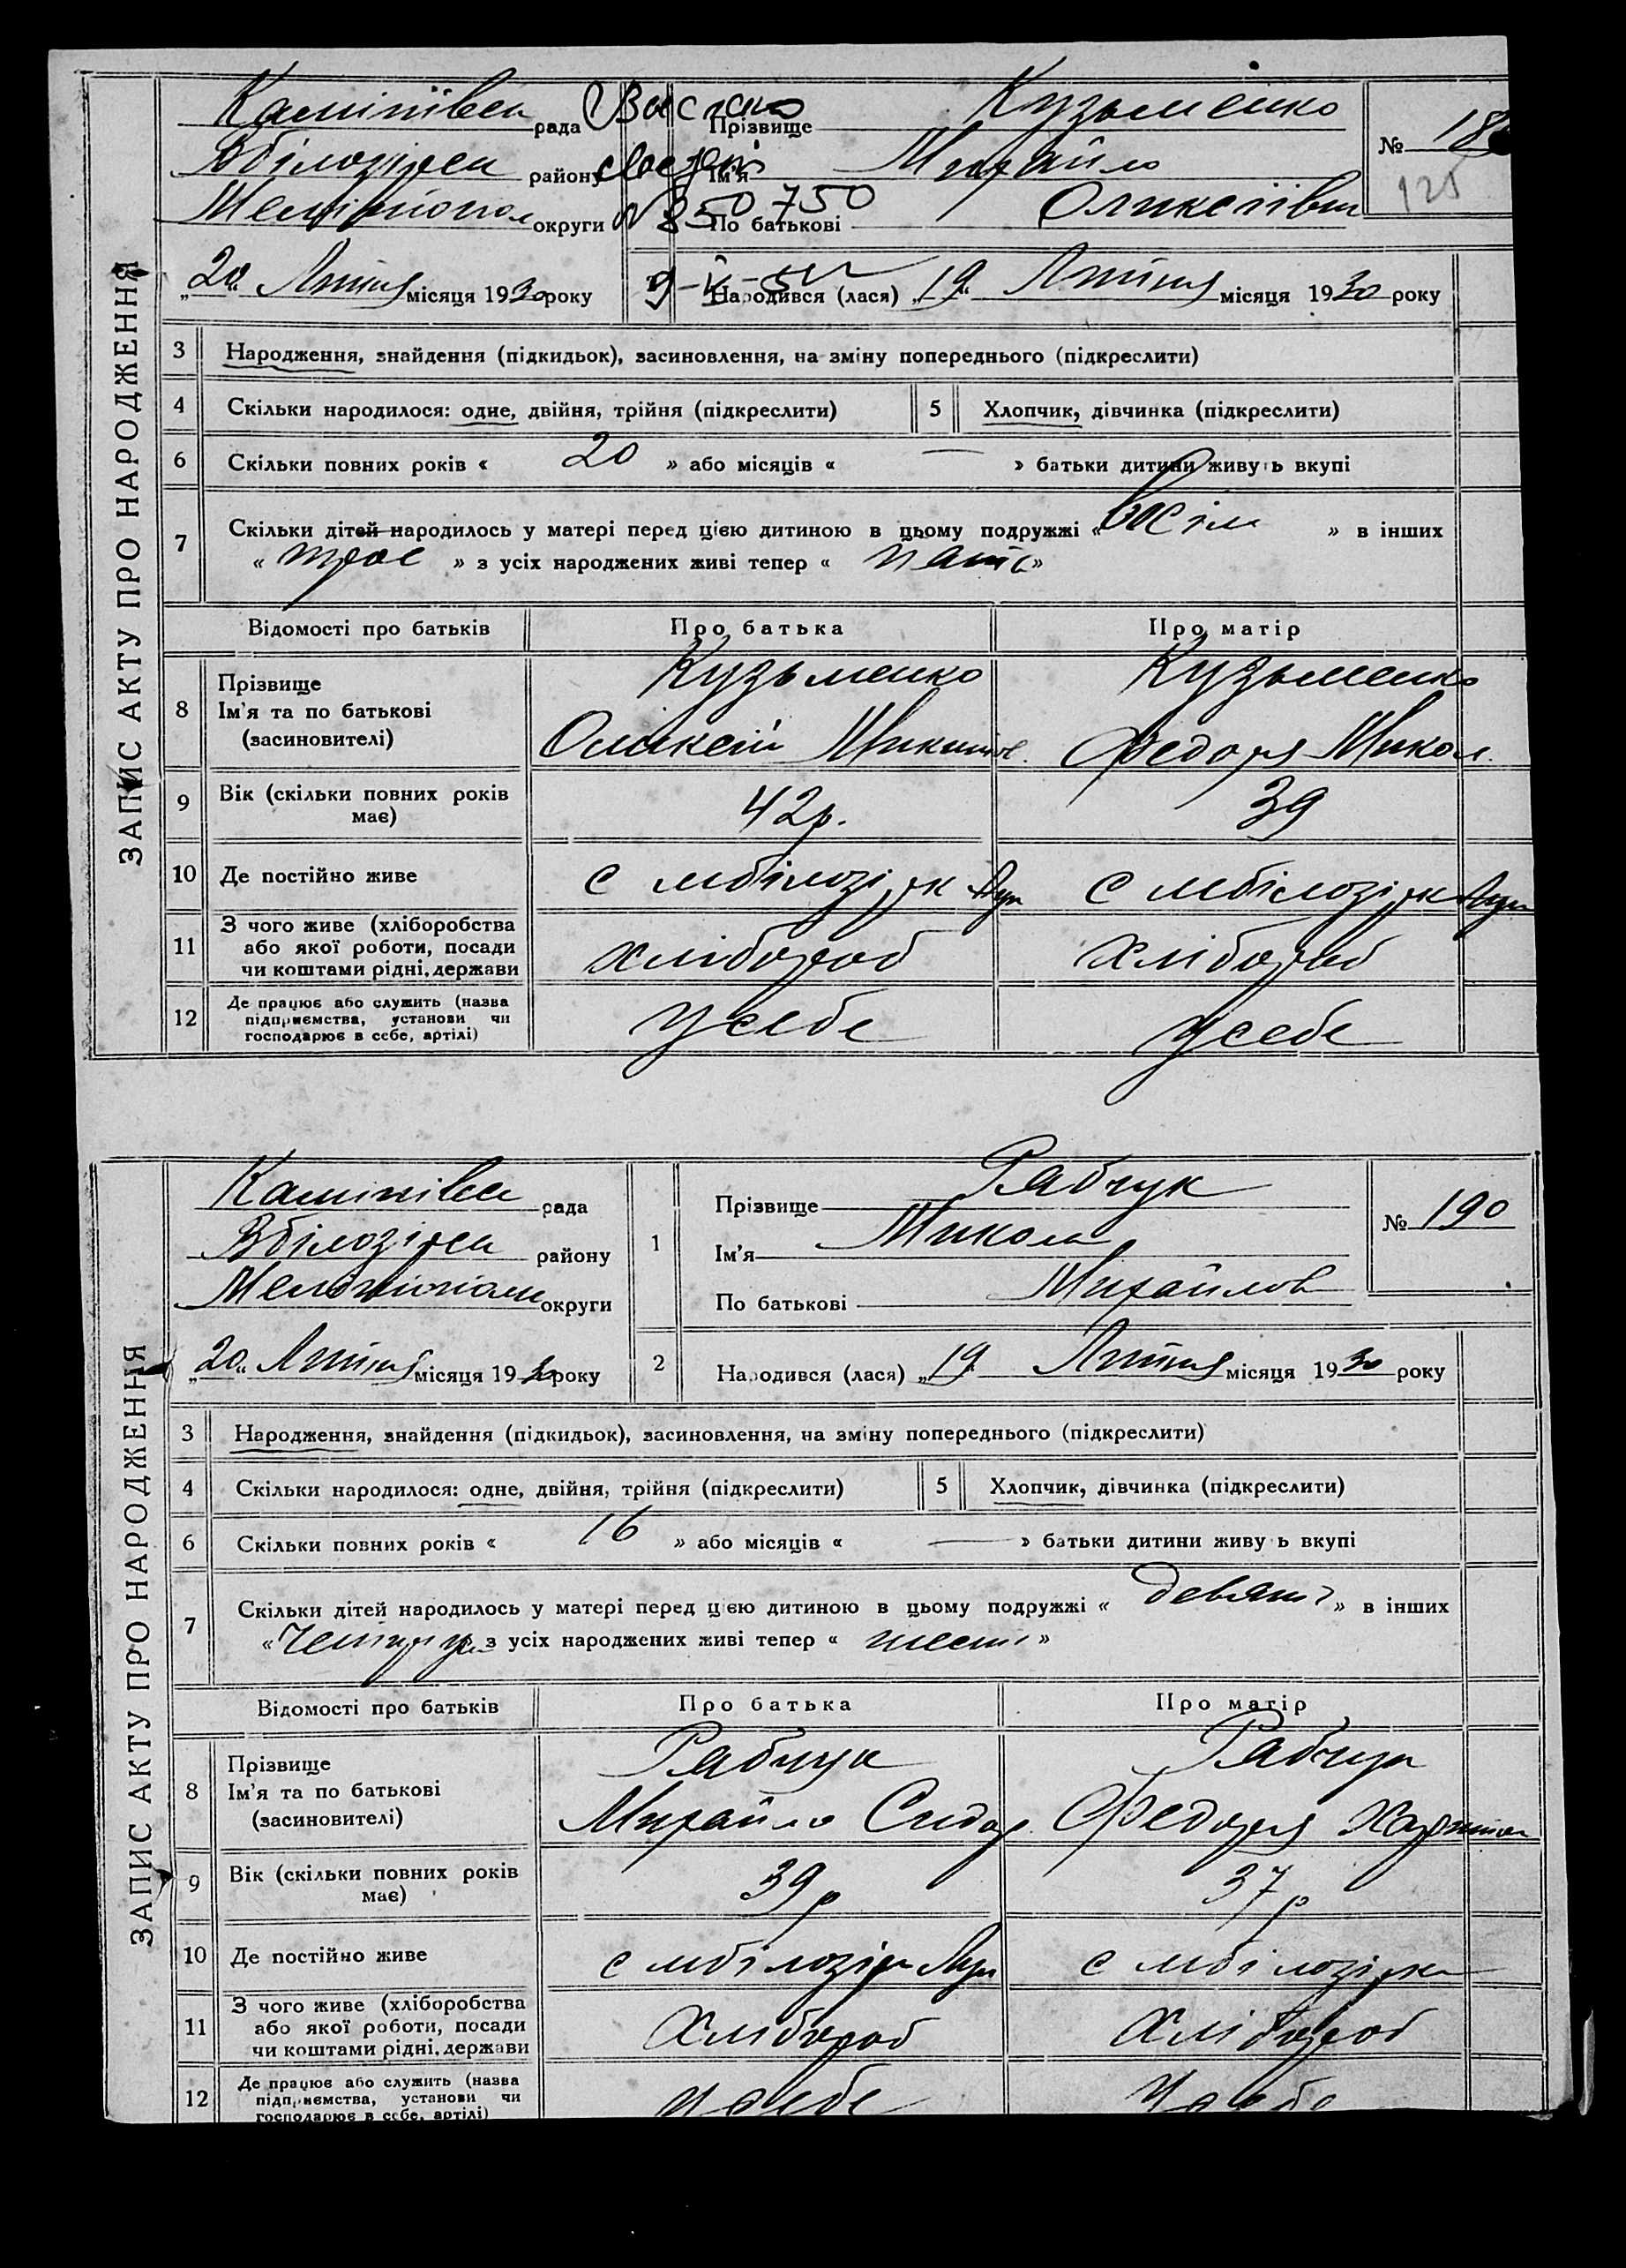 ЗАПИС АКТУ ПРО НАРОДЖЕННЯ
рада
Прізвище Кузьменко
району
Ім'я Михайло
округи
По батькові
№ 18
125
№ 750
„20“ Липня місяця 1930 року
Народився (лася) „19“ Липня місяця 1930 року
3 Народження, знайдення (підкидьок), засиновлення, на зміну попереднього (підкреслити)
4 Скільки народилося: одне, двійня, трійня (підкреслити) 5 Хлопчик, дівчинка (підкреслити)
6 Скільки повних років « 20 » або місяців « — » батьки дитини живуть вкупі
7 Скільки дітей народилось у матері перед цією дитиною в цьому подружжі « Восім » в інших
« трое » з усіх народжених живі тепер « пать »
Відомості про батьків Про батька Про матір
8 Прізвище Кузьменко Кузьменко
Ім'я та по батькові
(засиновителі) Олексій Федора Микол.
9 Вік (скільки повних років
має) 42р. 39
10 Де постійно живе с мбілозірк с мбілозірк
11 З чого живе (хліборобства
або якої роботи, посади
чи коштами рідні, держави хлібороб хлібороб
12 Де працює або служить (назва
підприємства, установи чи
господарює в себе, артілі) у себе у себе
ЗАПИС АКТУ ПРО НАРОДЖЕННЯ
рада
1 Прізвище Рабчук
№ 190
району
Ім'я Микола
округи
По батькові Михайлов
„20“ Липня місяця 1930 року
2 Народився (лася) „19“ Липня місяця 1930 року
3 Народження, знайдення (підкидьок), засиновлення, на зміну попереднього (підкреслити)
4 Скільки народилося: одне, двійня, трійня (підкреслити) 5 Хлопчик, дівчинка (підкреслити)
6 Скільки повних років « 16 » або місяців « — » батьки дитини живуть вкупі
7 Скільки дітей народилось у матері перед цією дитиною в цьому подружжі « девять » в інших
« » з усіх народжених живі тепер « шесть »
Відомості про батьків Про батька Про матір
8 Прізвище Рабчук Рабчук
Ім'я та по батькові
(засиновителі) Михайло Сидор. Федора
9 Вік (скільки повних років
має) 39р 37р
10 Де постійно живе с мбілозірк с мбілозірка
11 З чого живе (хліборобства
або якої роботи, посади
чи коштами рідні, держави Хлібороб хлібороб
12 Де працює або служить (назва
підприємства, установи чи
господарює в себе, артілі) у себе у себе